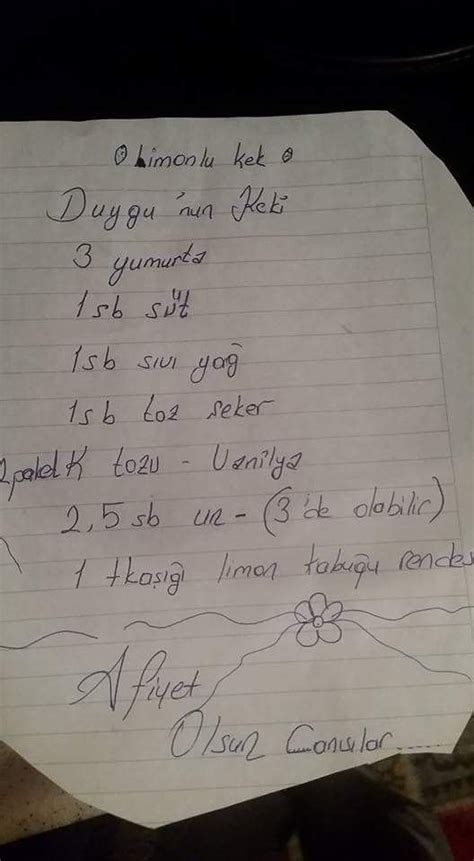 Limonlu kek
Duygu'nun Keki
3 yumurta
1sb süt
1sb sıvı yağ
1sb toz seker
2 paket K tozu - Vanilya
2,5 sb un - (3'de olabilir)
1 tkaşığı limon kabuğu rendes
Afiyet
Olsun Canısılar......